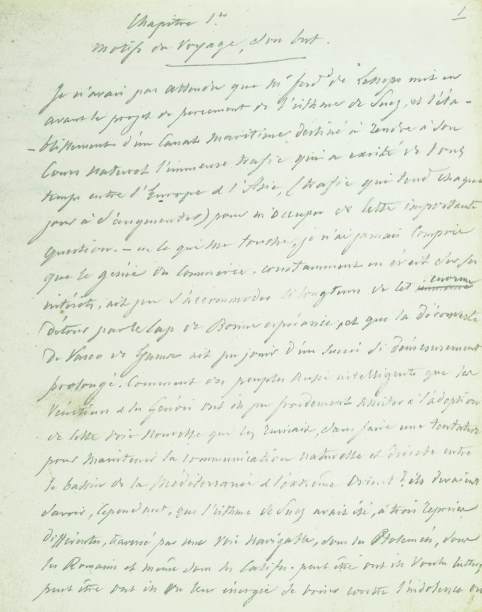 1
Chapitre 1er
Motifs du Voyage, son but.
Je n'avais pas attendu que Mr ferd. de Lesseps mit en
avant le projet de percement de l'isthme de Suez, et l'éta-
-blissement d'un Canal Maritime destiné à rendre à son
Cours naturel l'immense trafic qui a existé de tous
temps entre l'Europe et l'Asie, (trafic qui tend chaque
jour à s'augmenter) pour m'occuper de cette importante
question. - en ce qui me touche, je n'ai jamais compris
que le génie du Commerce, constamment en éveil sur ses
intérêts, ait pu s'accommoder si longtems de cet enorme
détour par le Cap de Bonne espérance, et que la découverte
de Vasco de Gama ait pu jouir d'un succès si démesurement
prolongé. Comment des peuples aussi intelligents que les
Vénitiens et les Genois ont ils pu froidement assister à l'adoption
de cette voie nouvelle qui les ruinait, sans faire une tentative
pour maintenir la communication naturelle et directe entre
le bassin de la Méditerranée et l'extrême Orient? ils devaient
savoir, cependant, que l'isthme de Suez avait été, à trois reprises
différentes, traversé par une voie navigable, sous les Ptolemées, sous
les Romains et même sous les Califes. peut être ont ils voulu lutter,
peut être ont ils vu leur énergie se briser contre l'indolence ou